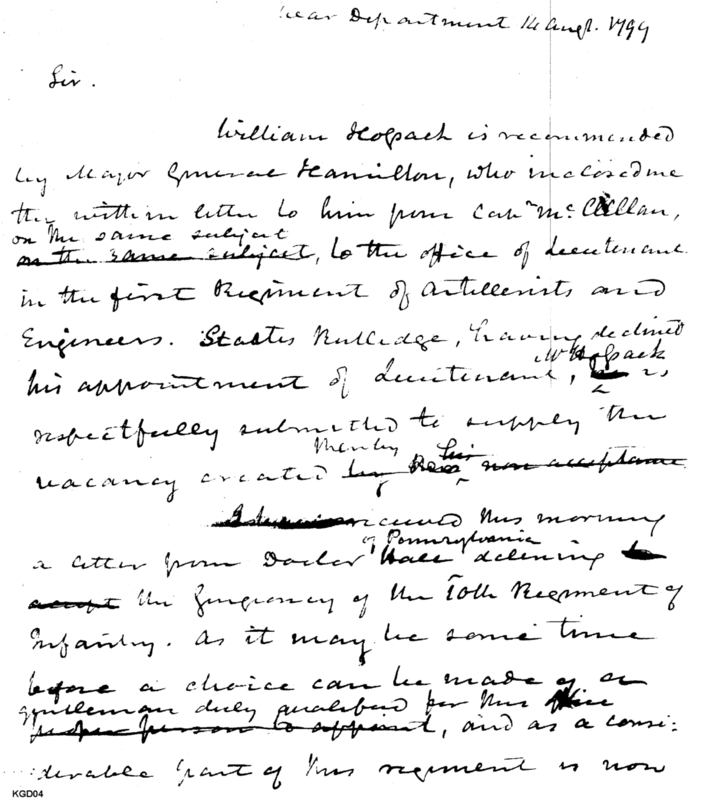 War Department 14 Augt. 1799
Sir.
William Hosack is recommended
by Major General Hamilton, who inclosed me
the within letter to him from Capn McClellan,
on the same subject
on the same subject, to the office of Lieutenant
in the first Regiment of Artillerists and
Engineers. States Rutledge, having declined
Mr Hosack
his appointment of Lieutenant, is
respectfully submitted to supply the
thereby his
vacancy created by non acceptance
received this morning
of Pennsylvania
a letter from Doctor Hall declining to
accept the Surgeoncy of the 10th Regiment of
Infantry. As it may be some time
before a choice can be made of a
gentleman duly qualified for this office
proper person to appoint, and as a consi:
derable part of this regiment is now
KGD04